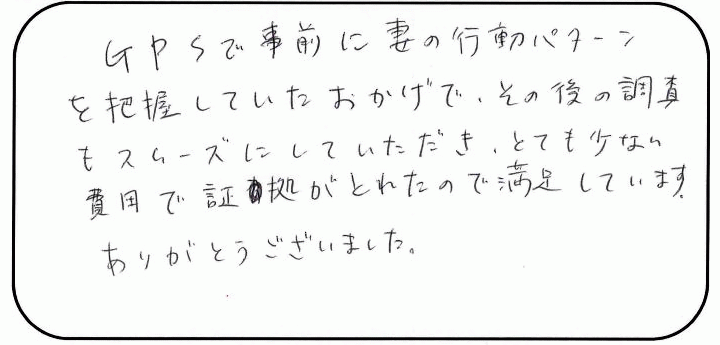 GPSで事前に妻の行動パターン
を把握していたおかげで、その後の調査
もスムーズにしていただき、とても少ない
費用で証拠がとれたので満足しています。
ありがとうございました。